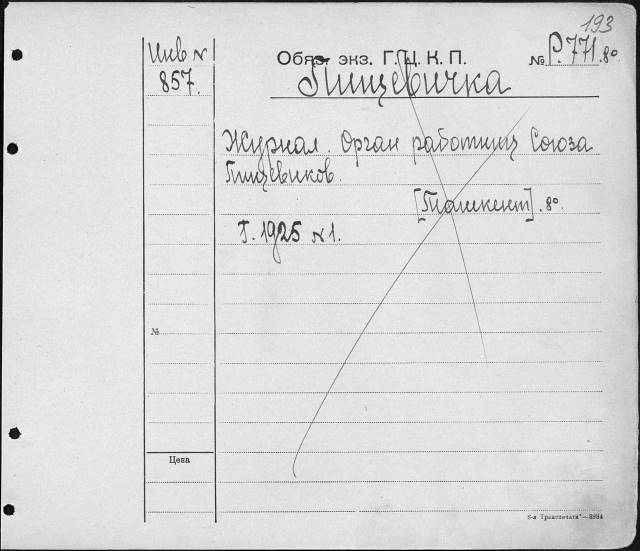 193
Инв N
857.
Обяз. экз. Г. Ц. К. П.
№ Р.771.8º
Пищевичка
Журнал. Орган работниц Союза
Пищевиков.
[Ташкент]. 8º.
Г. 1925 N 1.
№
Цена
8-я „Транспечати“—3984